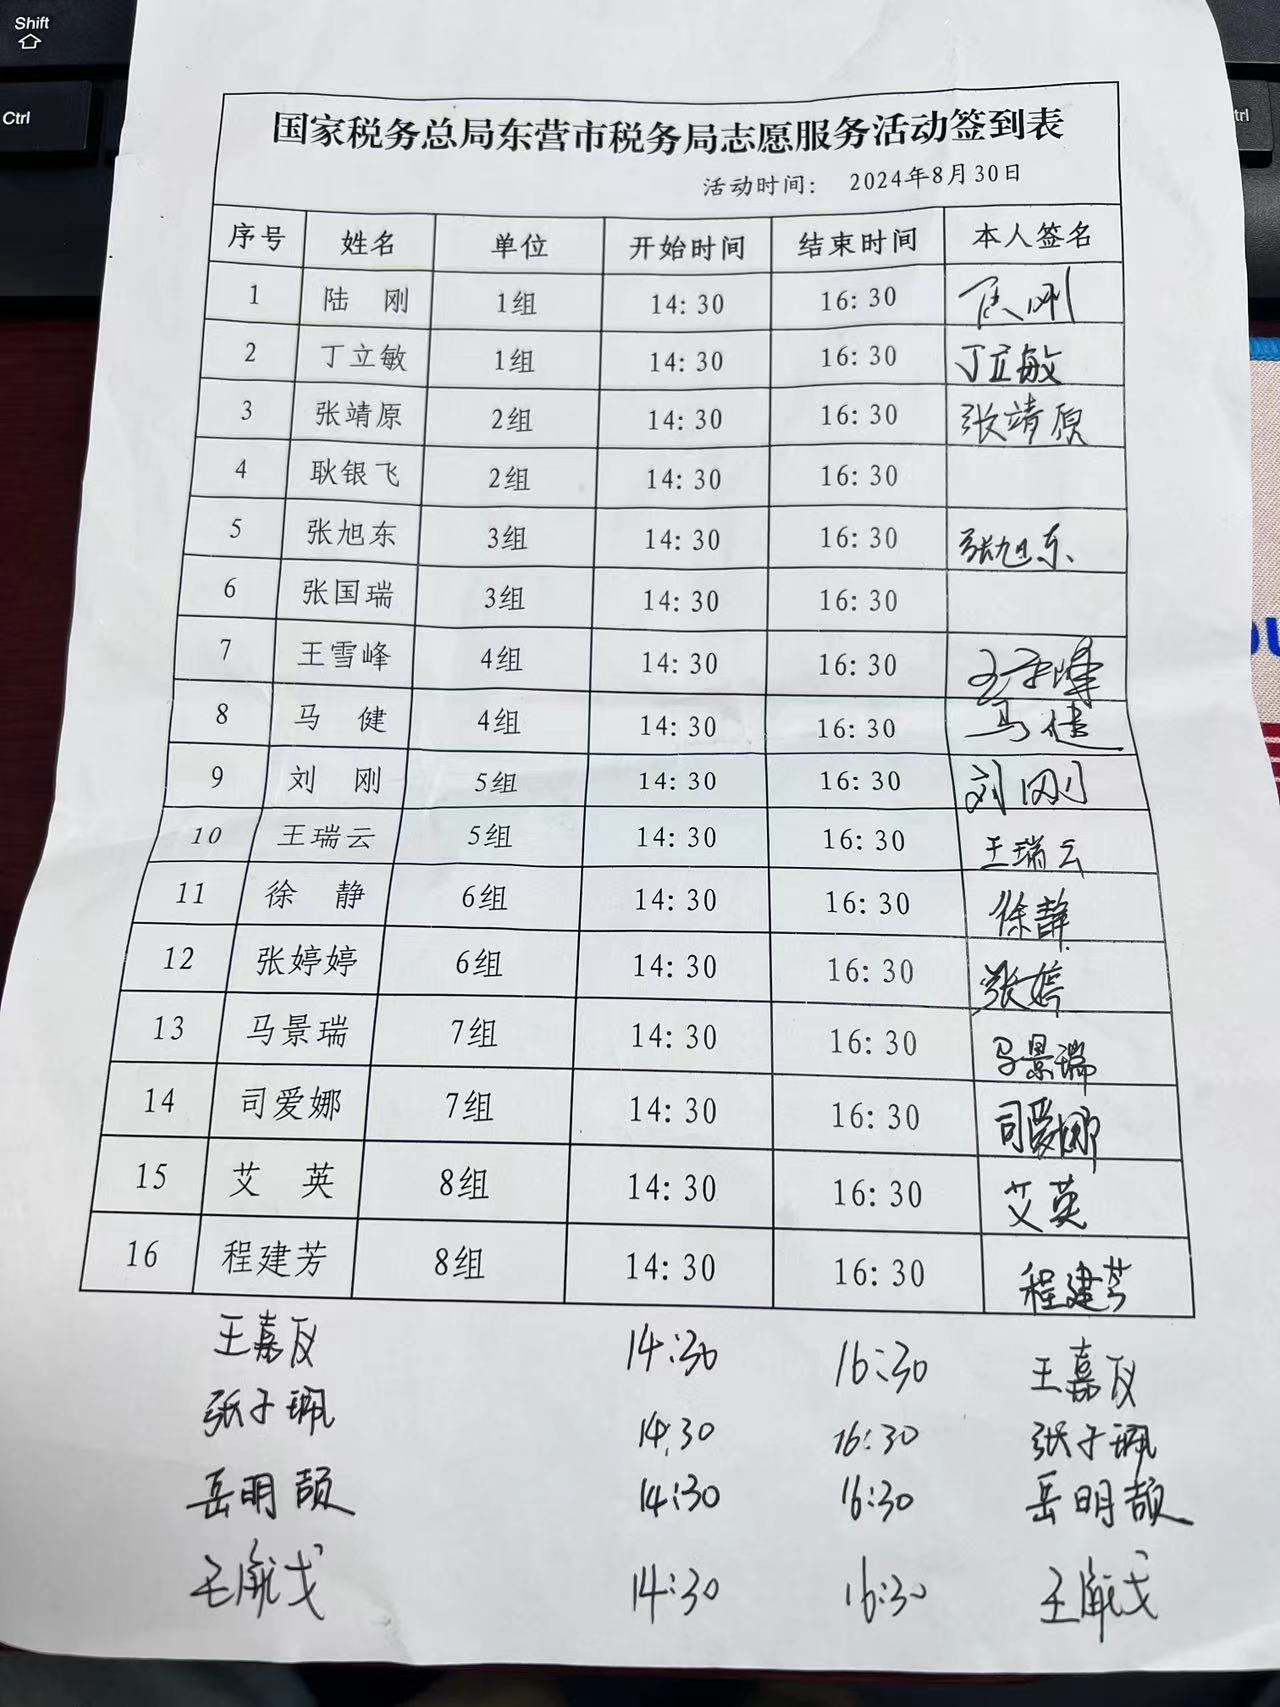 Shift
Ctrl
国家税务总局东营市税务局志愿服务活动签到表
活动时间： 2024年8月30日
序号 姓名 单位 开始时间 结束时间 本人签名
1 陆 刚 1组 14：30 16：30
2 丁立敏 1组 14：30 16：30 丁立敏
3 张靖原 2组 14：30 16：30 张靖原
4 耿银飞 2组 14：30 16：30
5 张旭东 3组 14：30 16：30 张旭东
6 张国瑞 3组 14：30 16：30
7 王雪峰 4组 14：30 16：30 王雪峰
8 马 健 4组 14：30 16：30 马健
9 刘 刚 5组 14：30 16：30 刘刚
10 王瑞云 5组 14：30 16：30 王瑞云
11 徐 静 6组 14：30 16：30 徐静
12 张婷婷 6组 14：30 16：30 张婷
13 马景瑞 7组 14：30 16：30 马景瑞
14 司爱娜 7组 14：30 16：30 司爱娜
15 艾 英 8组 14：30 16：30 艾英
16 程建芳 8组 14：30 16：30 程建芳
王嘉仪 14:30 16:30 王嘉仪
张子珮 14:30 16:30 张子珮
岳明颉 14:30 16:30 岳明颉
14:30 16:30